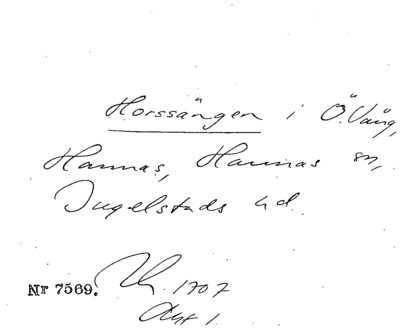 Horssängen i Ö. Vång,
Hannas, Hannas sn,
Ingelstads hd.
Nr 7569. 1707
Akt 1.